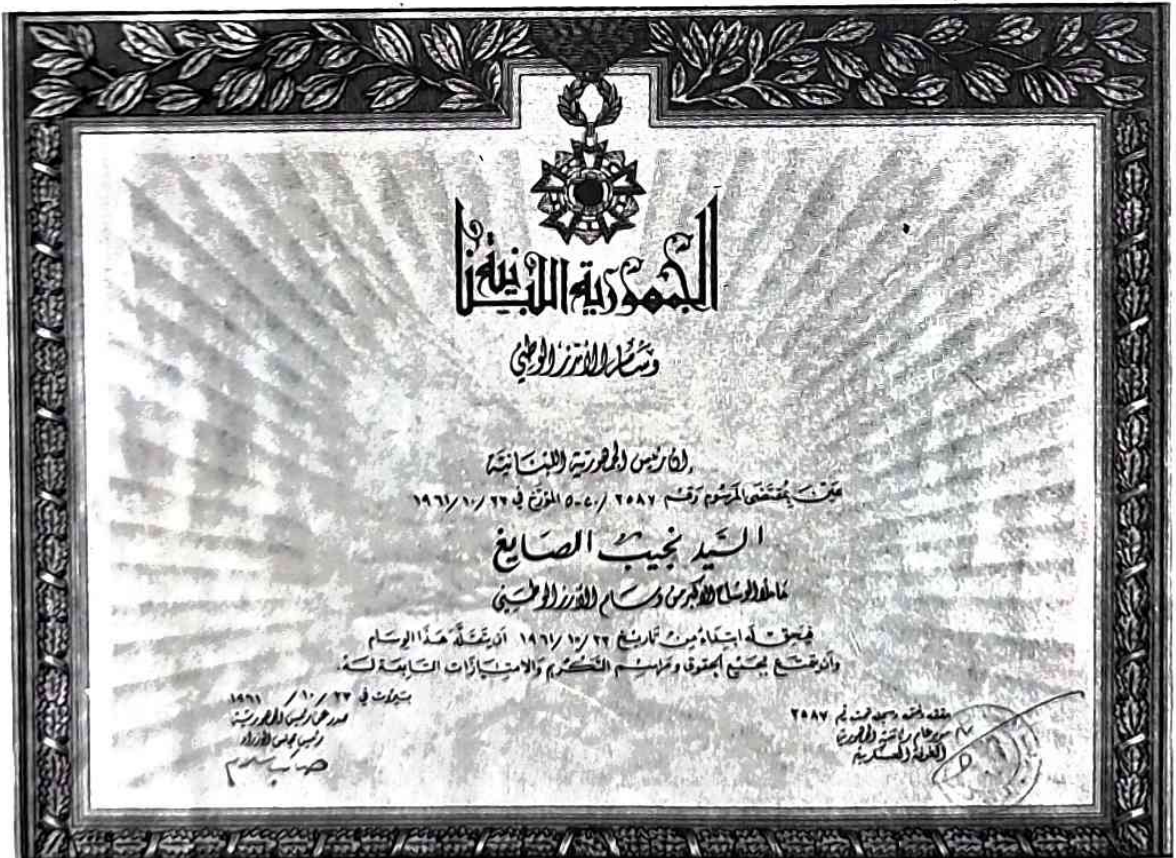 الجمهورية اللبنانية
وسام الأرز الوطني
إن رئيس الجمهورية اللبنانية
عين بمقتضى المرسوم رقم ٢٥٨٧ / المؤرخ في ٢٢/١٠/١٩٦١
السيد نجيب الصايغ
حاملا الوشاح الأكبر من وسام الأرز الوطني
فيحق له ابتداء من تاريخ ٢٢/١٠/١٩٦١ أن يتقلد هذا الوسام
وأن يتمتع بجميع الحقوق ومراسم التكريم والامتيازات التابعة له.
بيروت في ٢٧/١٠/١٩٦١
صدر عن رئيس الجمهورية
رئيس مجلس الوزراء
صائب سلام
تحت رقم ٢٥٨٧
مدير عام رئاسة الجمهورية
الغرفة العسكرية